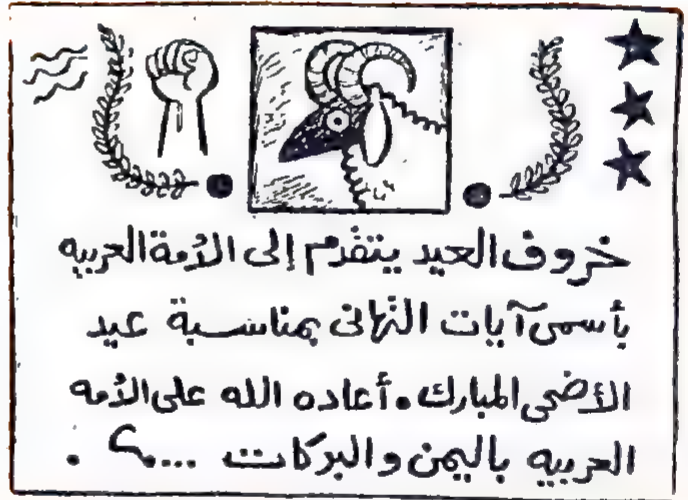 خروف العيد يتقدم إلى الأمة العربيه
بأسمى آيات التهانى بمناسبة عيد
الأضحى المبارك. أعاده الله على الأمه
العربيه باليمن والبركات ...؟.